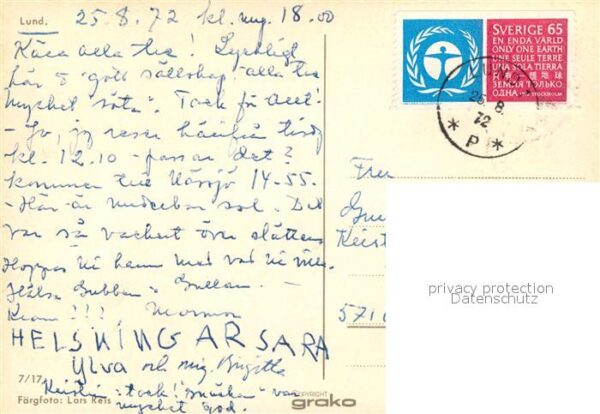 Lund.
25.8.72 kl. 18.00
Kära alla tre! Lyckligt
här o gott sällskap, alla tre
mycket "söta". Tack för allt!
– Jo, jag reser härifrån
kl. 12.10 – passar det?
kommer till Nässjö 14.55.
– Här är underbar sol. Det
var så vackert över slätten
Hoppas ni hann med vad ni
Hälsa Gubban o Gullan.
Kram!!! Mormor
HELSNINGAR SARA
Ylva och mig Birgitta
Kerstin: tack! "
mycket god.
7/17
Färgfoto: Lars Reis
COPYRIGHT
grako
SVERIGE 65
EN ENDA VÄRLD
ONLY ONE EARTH
UNE SEULE TERRE
UNA SOLA TIERRA
ЗЕМЛЯ ТОЛЬКО
ОДНА
25.8.
72
* P *
571
privacy protection
Datenschutz